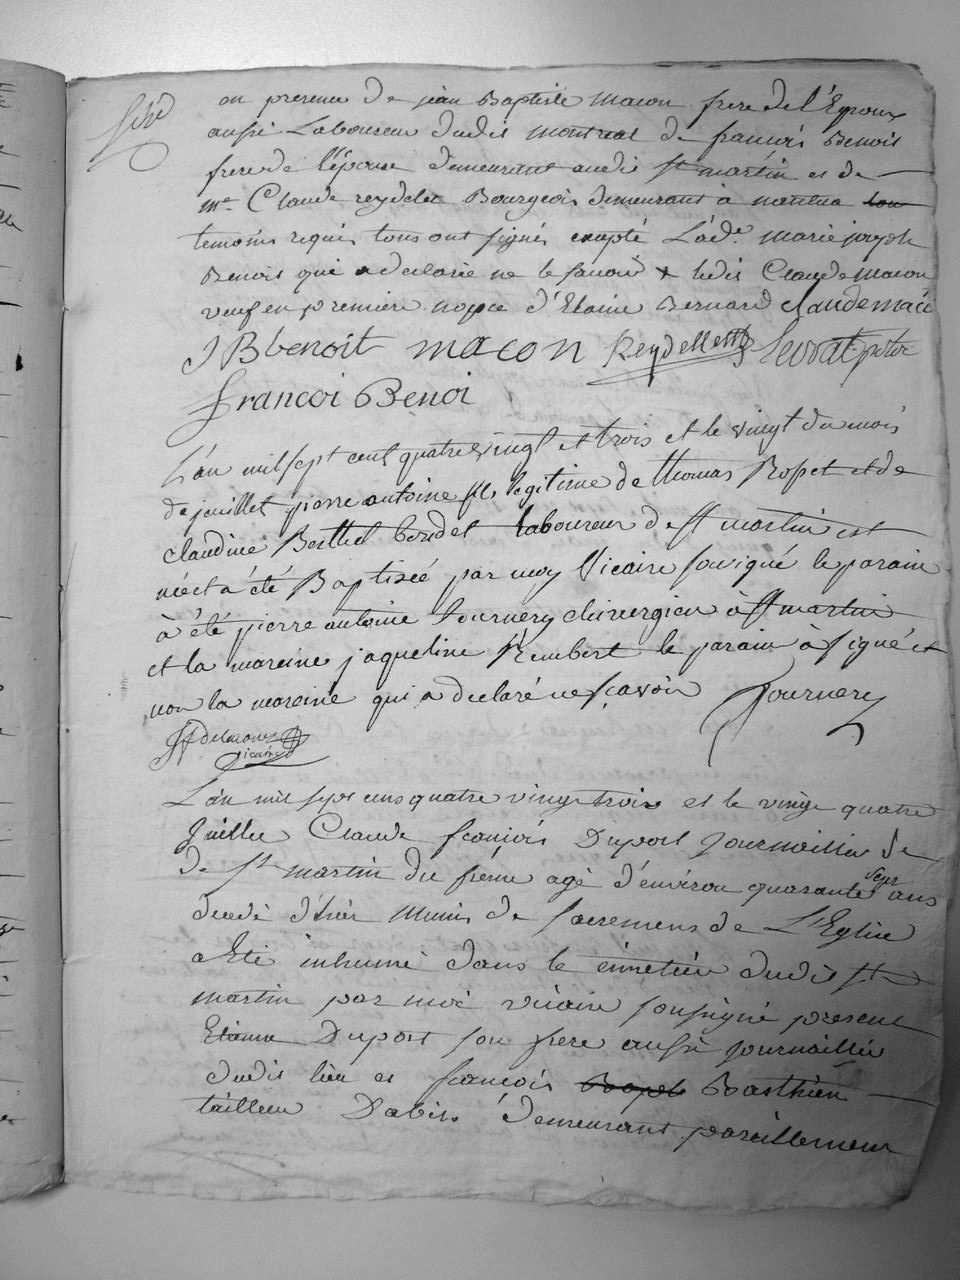 en presence de jean Baptiste macon frere de l'Epoux
aussi Laboureur dudit montreal de francois Benoit
frere de l'épouse demeurant audit st martin et de
mre Claude reydelet Bourgeois demeurant à nantua
temoins requis tous ont signés excepté Lade. marie joseph
Benoit qui a declarée ne le savoir + ledit Claude macon
veuf en premiere noppce d'Etaine Bernard claude macon
J B benoit macon Reydellet
francoi Benoi
L'an mil sept cent quatre vingt et trois et le vingt du mois
de jeuillet pierre antoine fils legitime de thomas Ropet et de
claudine Berthet laboureur de st martin est
né et a été Baptisée par moy Vicaire sousigné le parain
à été pierre antoine tournery chirurgien à st martin
et la maraine jaqueline rembert le parain à signé et
non la maraine qui a declaré ne sçavoir Journery
vicaire
L'an mil sept cens quatre vingt trois et le vingt quatre
Juillet Claude françois Duport Journaillier de
de st martin du frêne agé d'environ quarante sept ans
decedé d'hier Munis de sacremens de L'Eglise
a Eté inhumé dans le cimetière dudit st
martin par moi vicaire soussigné present
Etienne Duport son frere aussi journaillié
dudit lieu et françois Basthien
tailleur D'abits demeurant pareillement